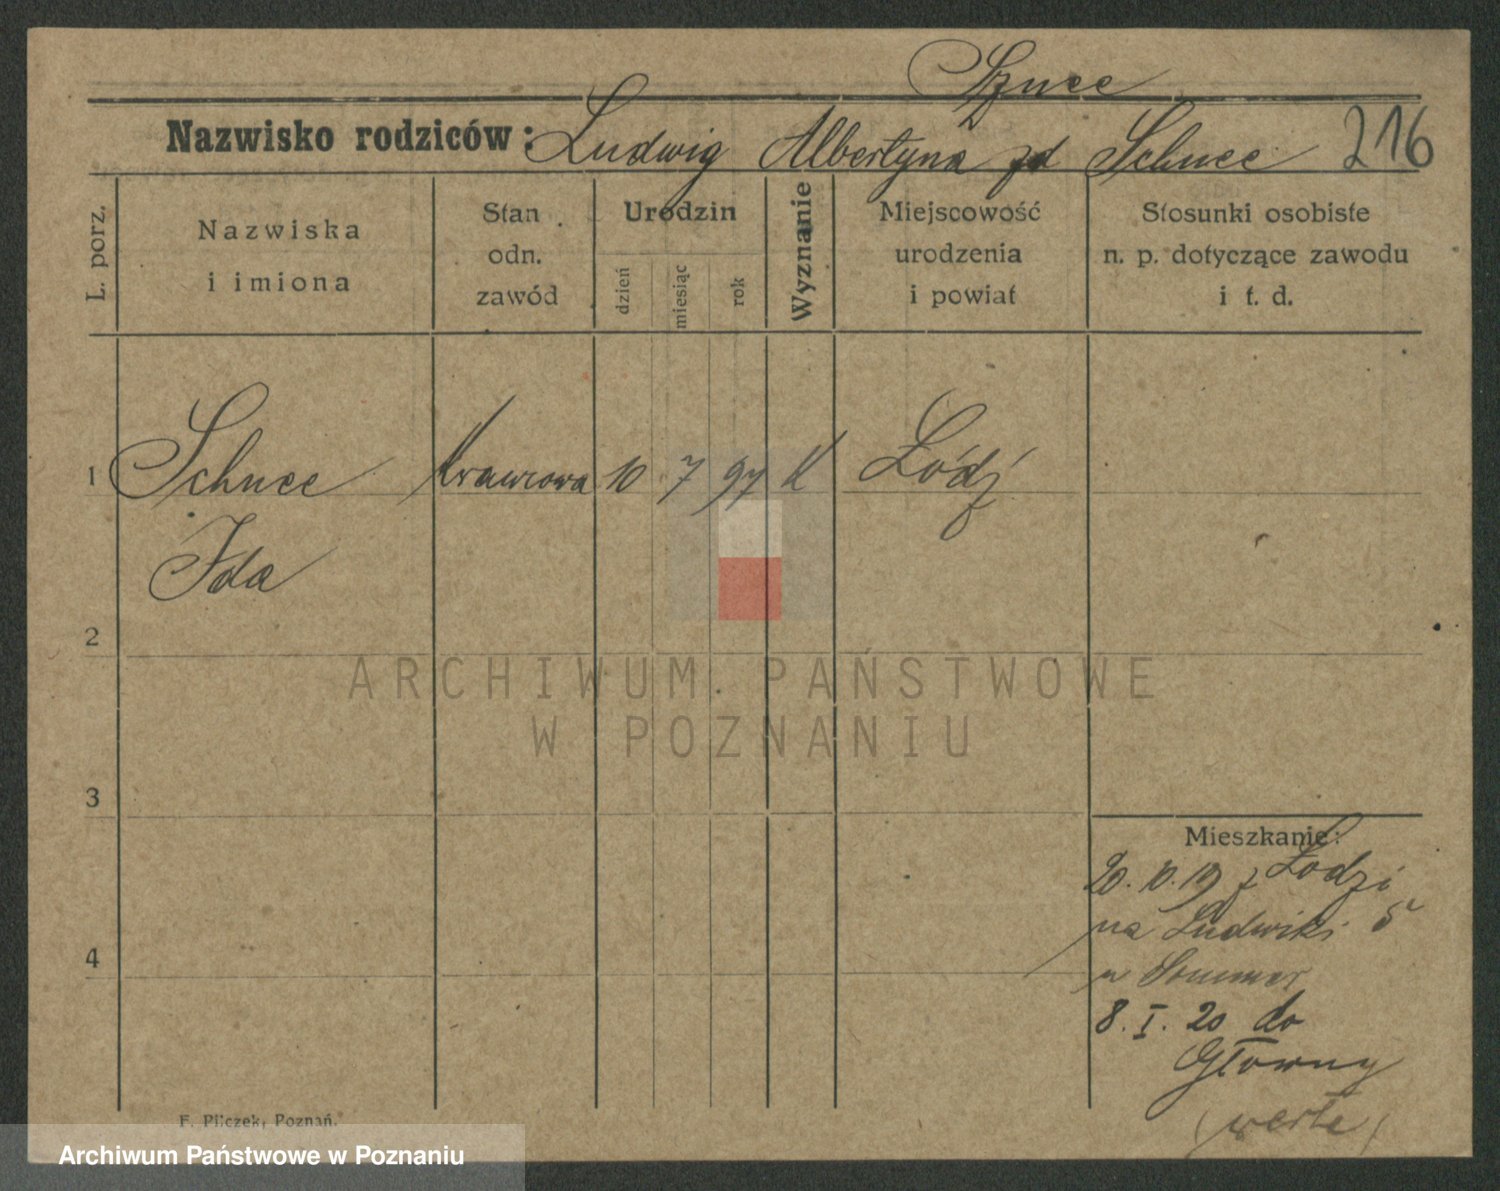 Sznee
Nazwisko rodziców: Ludwig Albertyna zd Schnee 216
L. porz.
Nazwiska
i imiona
Stan
odn.
zawód
Urodzin
dzień
miesiąc
rok
Wyznanie
Miejscowość
urodzenia
i powiat
Stosunki osobiste
n. p. dotyczące zawodu
i t. d.
1 Schnee Krawcowa 10 7 97 K Łódź
Ida
2
ARCHIWUM PAŃSTWOWE
W POZNANIU
3
Mieszkanie:
20. 10. 19 z Łodzi
na Ludwiki 5
u Sommer
4
8. I. 20 do
Główny
(werte)
F. Pilczek, Poznań.
Archiwum Państwowe w Poznaniu